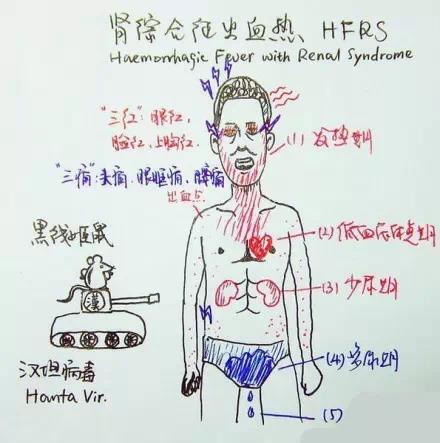 肾综合征出血热 HFRS
Haemorrhagic Fever with Renal Syndrome
"三红":眼红,
脸红,上胸红.
(1) 发热期
"三痛":头痛.眼眶痛,腰痛
出血点
黑线姬鼠
(2) 低血压休克期
漢
(3) 少尿期
汉坦病毒
Hanta Vir.
(4) 多尿期
(5)